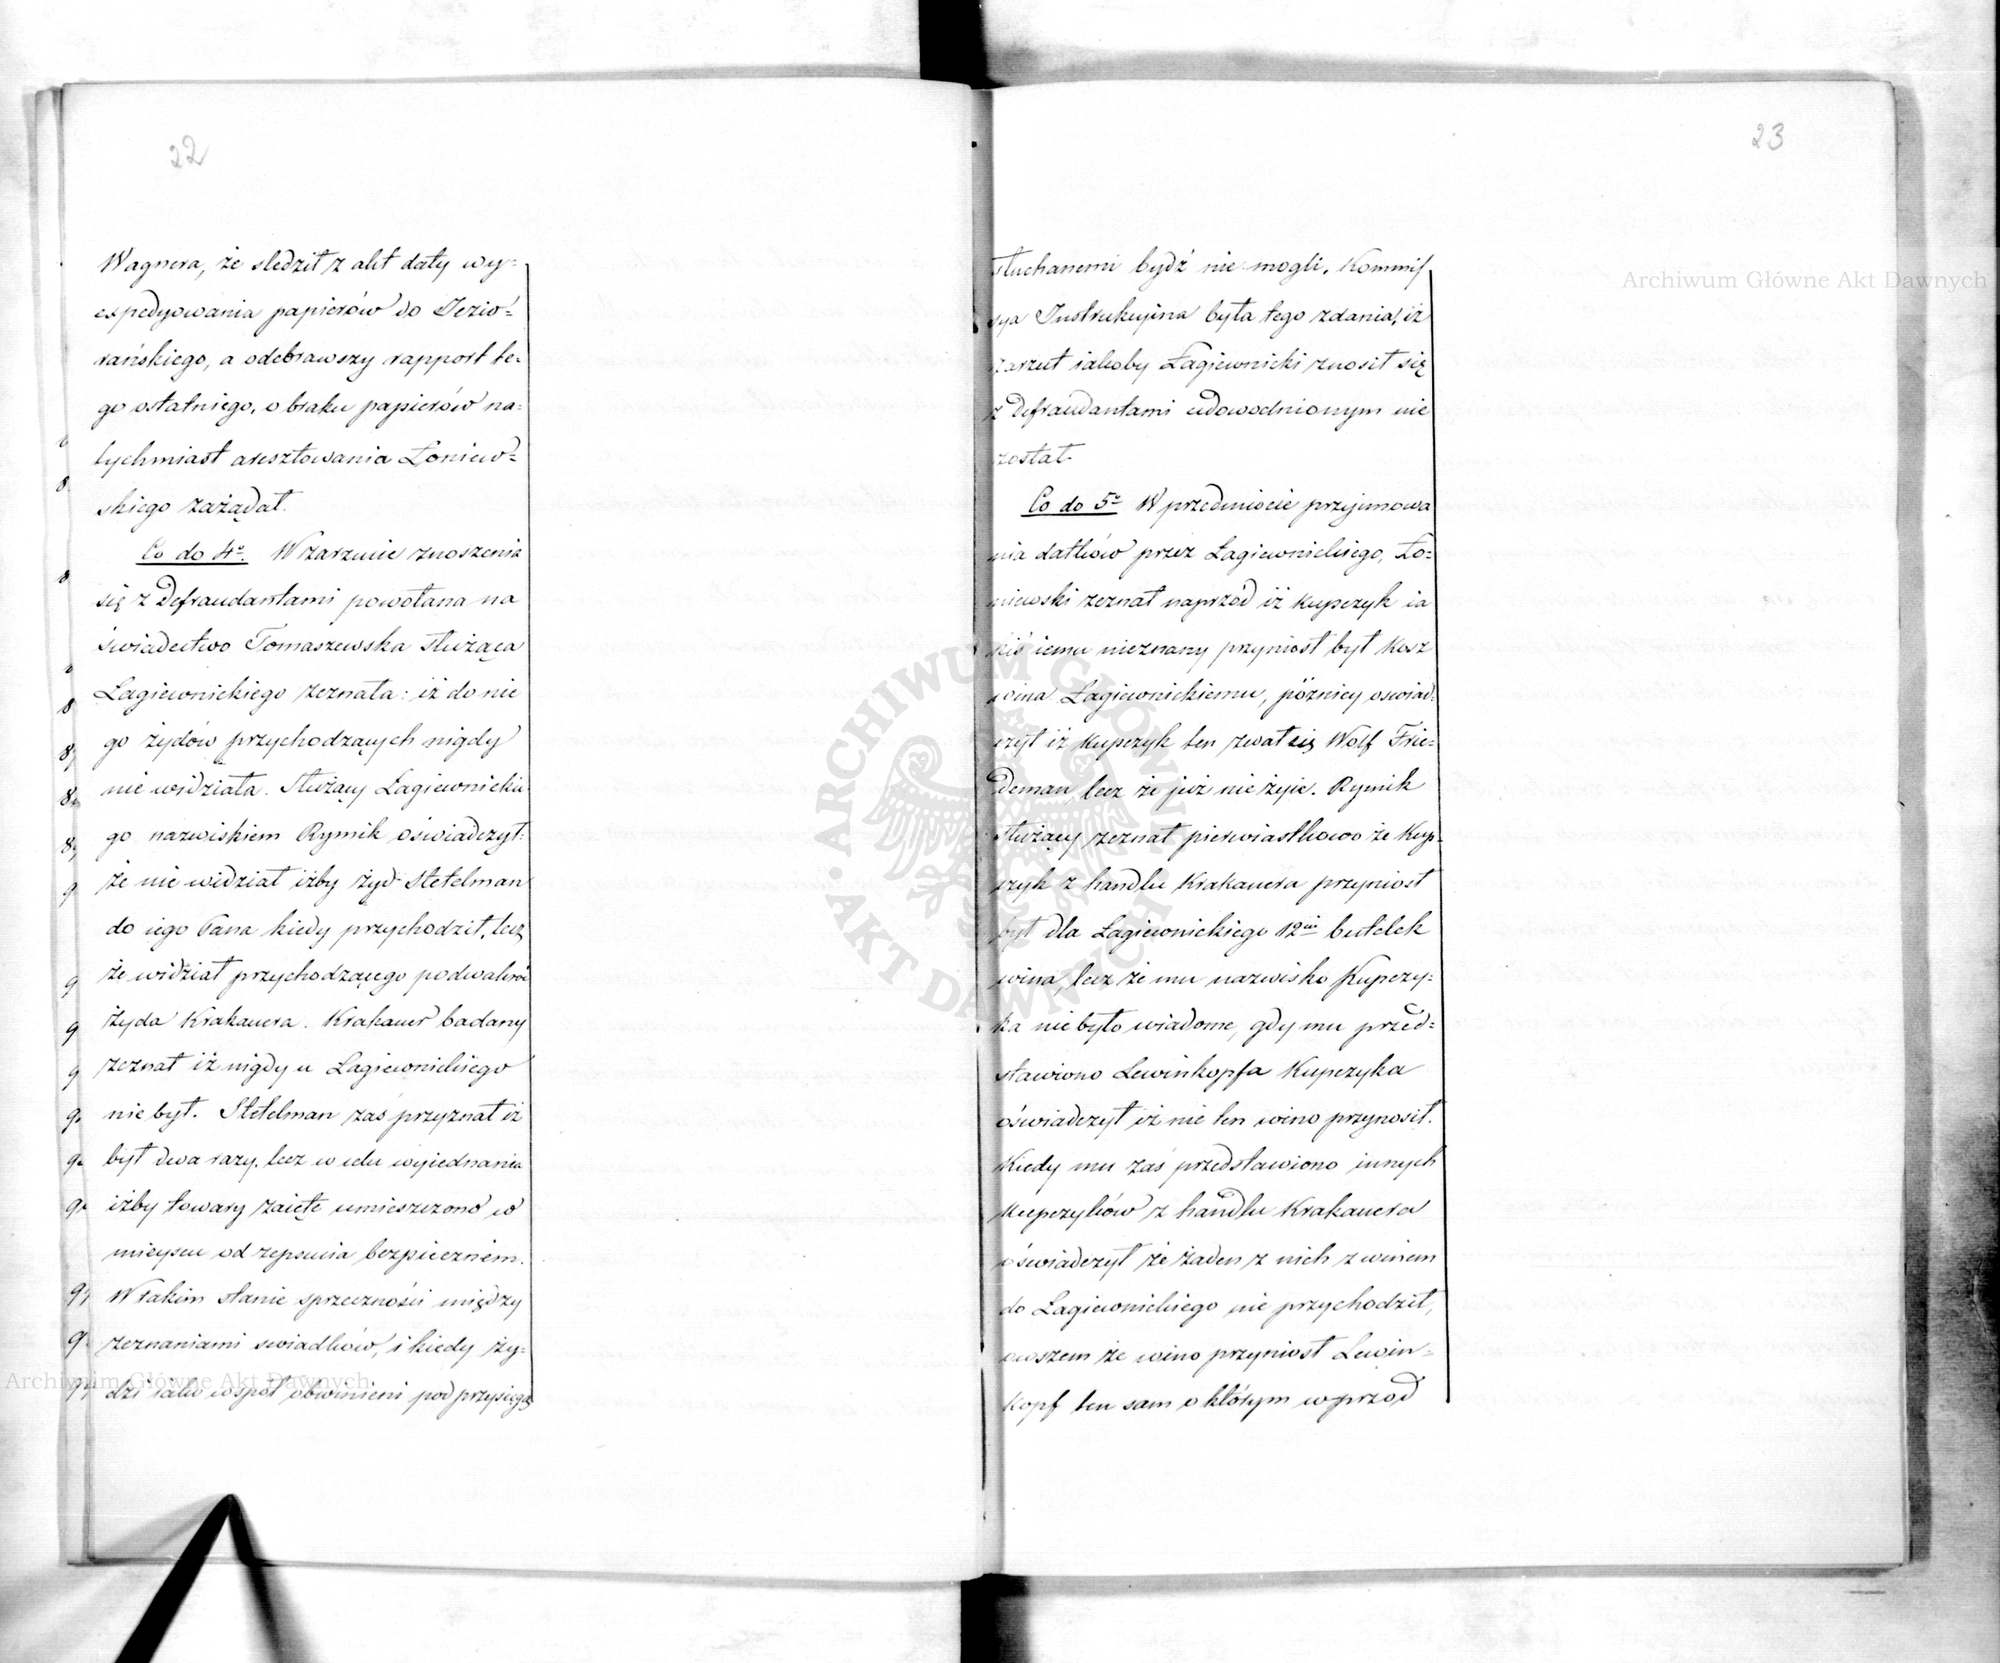 22
Wagnera, że sledził z akt daty wy=
expedyowania papierów do Jezio=
rańskiego, a odebrawszy rapport te=
go ostatniego, o braku papierów na=
tychmiast aresztowania Łoniew=
skiego zażądał.
Co do 4o. W zarzucie znoszenia
się z Defraudantami powołana na
świadectwo Tomaszewska służąca
Łagiewnickiego zeznała: iż do nie
go żydów przychodzących nigdy
nie widziała. Służący Łagiewnickie
go nazwiskiem Rymik oświadczył:
że nie widział iżby żyd Stetelman
do iego Pana kiedy przychodził, lecz
że widział przychodzącego podwakroć
żyda Krakauera. Krakauer badany
zeznał iż nigdy u Łagiewnickiego
nie był. Stetelman zaś przyznał iż
był dwa razy, lecz w celu wyiednania
iżby towary zaięte umieszczono w
mieyscu od zepsucia bezpiecznem.
W takim stanie sprzeczności między
zeznaniami swiadków, i kiedy ży=
dzi iako wspoł obwinieni pod przysięgą
23
słuchanemi bydź nie mogli, Kommis
sya Instrukcyina była tego zdania, iż
zarzut iakoby Łagiewnicki znosił się
z Defraudantami udowodnionym nie
został.
Co do 5o W przedmiocie przyjmowa
nia datków przez Łagiewnickiego, Ło=
niewski zeznał naprzód iż Kupczyk ia
kiś iemu nieznany przyniosł był Kosz
wina Łagiewnickiemu, pózniey oswiad=
czył iż Kupczyk ten zwał się Wolf Frie=
deman, lecz że już nie żyie. Rymik
służący zeznał pierwiastkowo że Kup=
czyk z handlu Krakauera przyniosł
był dla Łagiewnickiego 12ie butelek
wina, lecz że mu nazwisko Kupczy=
ka nie było wiadome, gdy mu przed=
stawiono Lewinkopfa Kupczyka
oświadczył iż nie ten wino przynosił.
Kiedy mu zaś przedstawiono innych
Kupczyków z handlu Krakauera
oświadczył że żaden z nich z winem
do Łagiewnickiego nie przychodził,
owszem że wino przyniosł Lewin=
kopf ten sam o którym wprzod
Archiwum Główne Akt Dawnych
Archiwum Główne Akt Dawnych
ARCHIWUM GŁÓWNE
AKT DAWNYCH